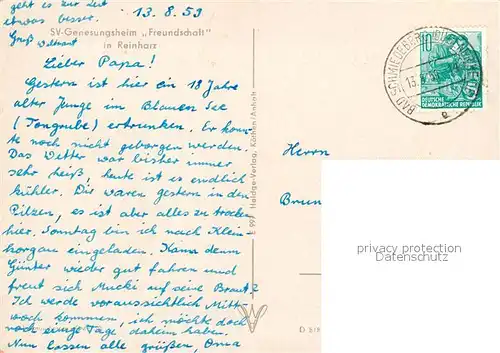 geht es zur Zeit
etwas besser.
Gruß
13.8.59
SV-Genesungsheim „Freundschaft"
in Reinharz
Lieber Papa!
Gestern ist hier ein 18 Jahre
alter Junge im Blauen See
(Tongrube) ertrunken. Er konn-
te noch nicht geborgen werden
Das Wetter war bisher immer
sehr heiß, heute ist es endlich
kühler. Wir waren gestern in den
Pilzen, es ist aber alles zu trocken
hier. Sonntag bin ich nach Klein
korgau eingeladen. Kann denn
Günter wieder gut fahren und
freut sich Mucki auf seine Braut?
Ich werde voraussichtlich Mitt-
woch kommen, ich möchte doch
noch einige Tage daheim haben.
Nun lassen alle grüßen, Oma
Heldge-Verlag, Köthen/Anhalt
BAD SCHMIEDEBERG
13.
a
10
DEUTSCHE
DEMOKRATISCHE REPUBLIK
Herrn
Braun
privacy protection
Datenschutz